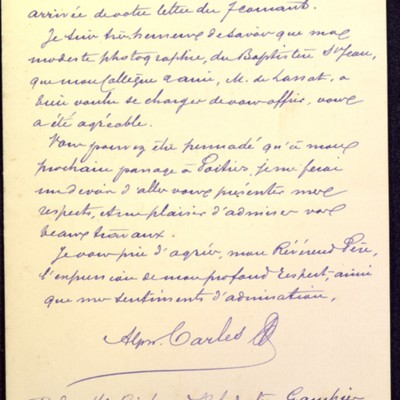 arrivée de votre lettre du 7 courant.
Je suis très heureux de savoir que ma
modeste photographie, du Baptistère St Jean,
que mon Collègue & ami, M. de Lassat, a
bien voulu se charger de vous offrir, vous
a été agréable.
Vous pouvez être persuadé qu'à mon
prochain passage à Poitiers, je me ferai
un devoir d'aller vous présenter mes
respects, et un plaisir d'admirer vos
beaux travaux.
Je vous prie d'agréer, mon Révérend Père,
l'expression de mon profond respect, ainsi
que mes sentiments d'admiration,
Alph. Carles